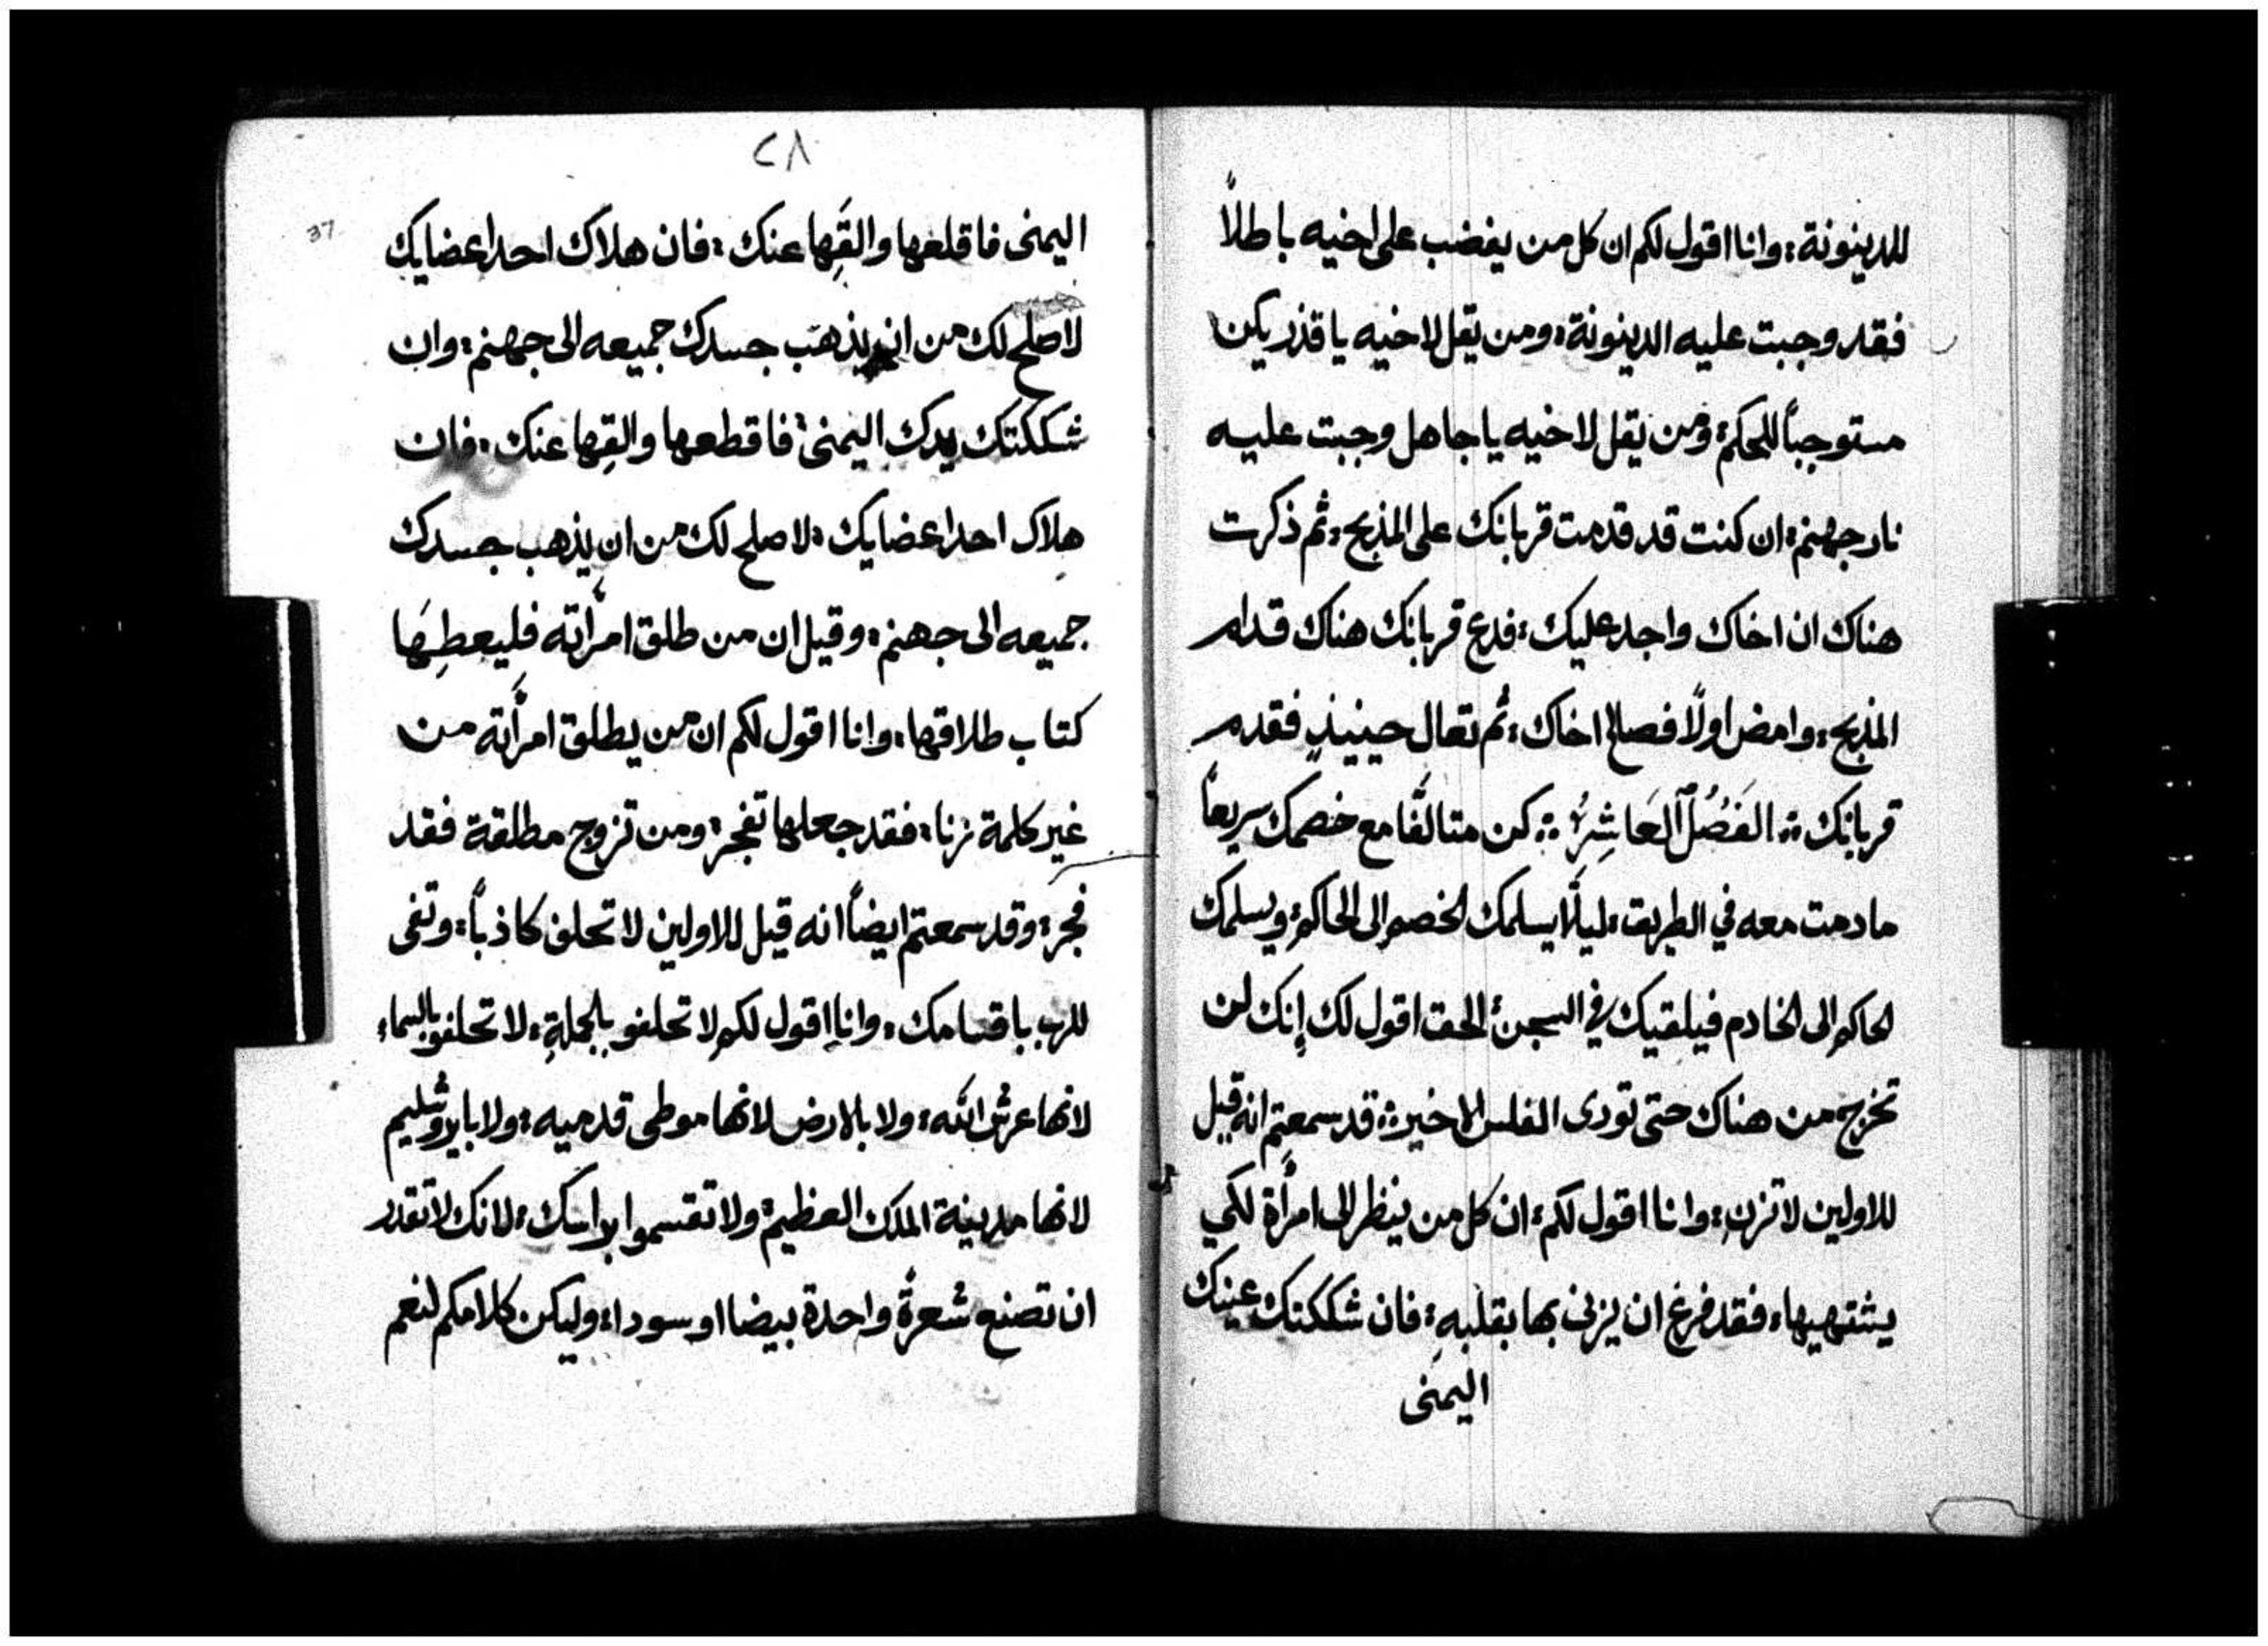 للدينونة: وانا اقول لكم ان كل من يغضب على اخيه باطلاً
فقد وجبت عليه الدينونة: ومن يقل لاخيه يا قذر يكن
مستوجباً للحكم: ومن يقل لاخيه يا جاهل وجبت عليه
نار جهنم: ان كنت قد قدمت قربانك على المذبح: ثم ذكرت
هناك ان اخاك واجد عليك: فدع قربانك هناك قدام
المذبح: وامض اولاً فصالح اخاك: ثم تعال حينيذٍ فقدم
قربانك: الفَصُلُ العَاشِرُ: كن متالفًا مع خصمك سريعاً
ما دمت معه في الطريق: ليلّا يسلمك الخصم الى الحاكم: ويسلمك
الحاكم الى الخادم فيلقيك في السجن: الحق اقول لك إنك لن
تخرج من هناك حتى تودى الفلس الاخير: قد سمعتم انه قيل
للاولين لا تزنِ: وانا اقول لكم: ان كل من ينظر الى امرأة لكي
يشتهيها: فقد فرغ ان يزنى بها بقلبهِ: فان شككتك عينك
اليمنى
٢٨
37
اليمنى فاقلعها والقِها عنك: فان هلاك احد اعضايك
لاصلح لك من ان يذهب جسدك جميعه الى جهنم: وان
شككتك يدك اليمنى: فاقطعها والقِها عنك: فان
هلاك احد اعضايك: لاصلح لك من ان يذهب جسدك
جميعه الى جهنم: وقيل ان من طلق امرأته فليعطِهَا
كتاب طلاقها: وانا اقول لكم ان من يطلق امرأته من
غير كلمة زنا: فقد جعلها تفجر: ومن تزوج مطلقة فقد
فجر: وقد سمعتم ايضاً انه قيل للاولين لا تحلف كاذباً: وتفى
للرب باقسامك: وانا اقول لكم لا تحلفو بالجملةِ: لا تحلفو بالسماء
لانها عرش الله: ولا بالارض لانها موطى قدميه: ولا بايروشليم
لانها مدينة الملك العظيم: ولا تقسموا براسك: لانك لا تقدر
ان تصنع شعرةً واحدة بيضا او سودا: وليكن كلامكم لنعم